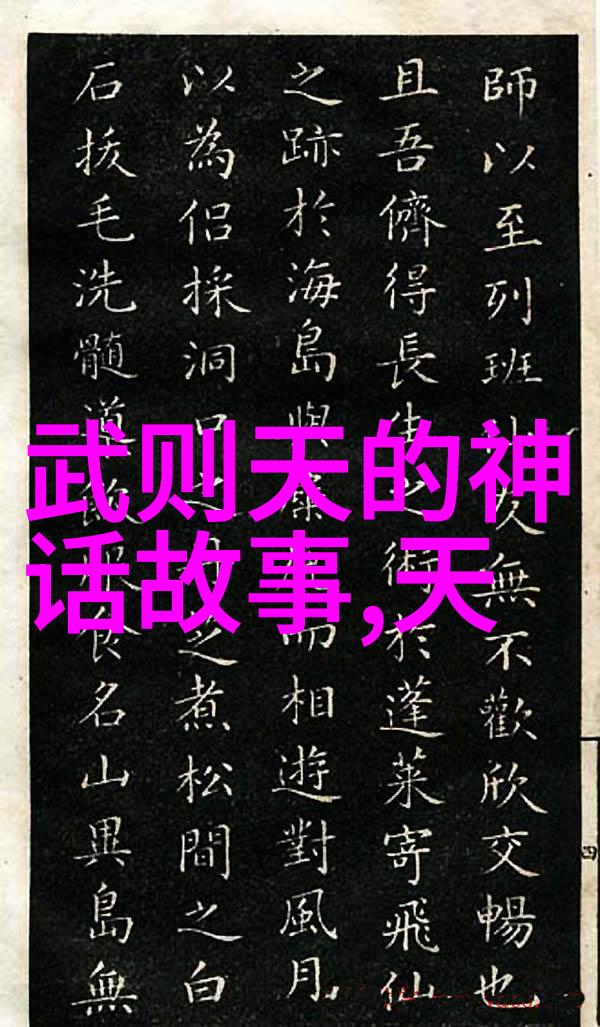 武则天的神
话故事,天
師以至列班友無不歡欣交暢也
且吾儕得長生之術於蓬萊寄飛仙
之跡於海島與而相遊對風月
以為侶採洞口之之煮松間之白
石拔毛洗髓食名山異島無
四